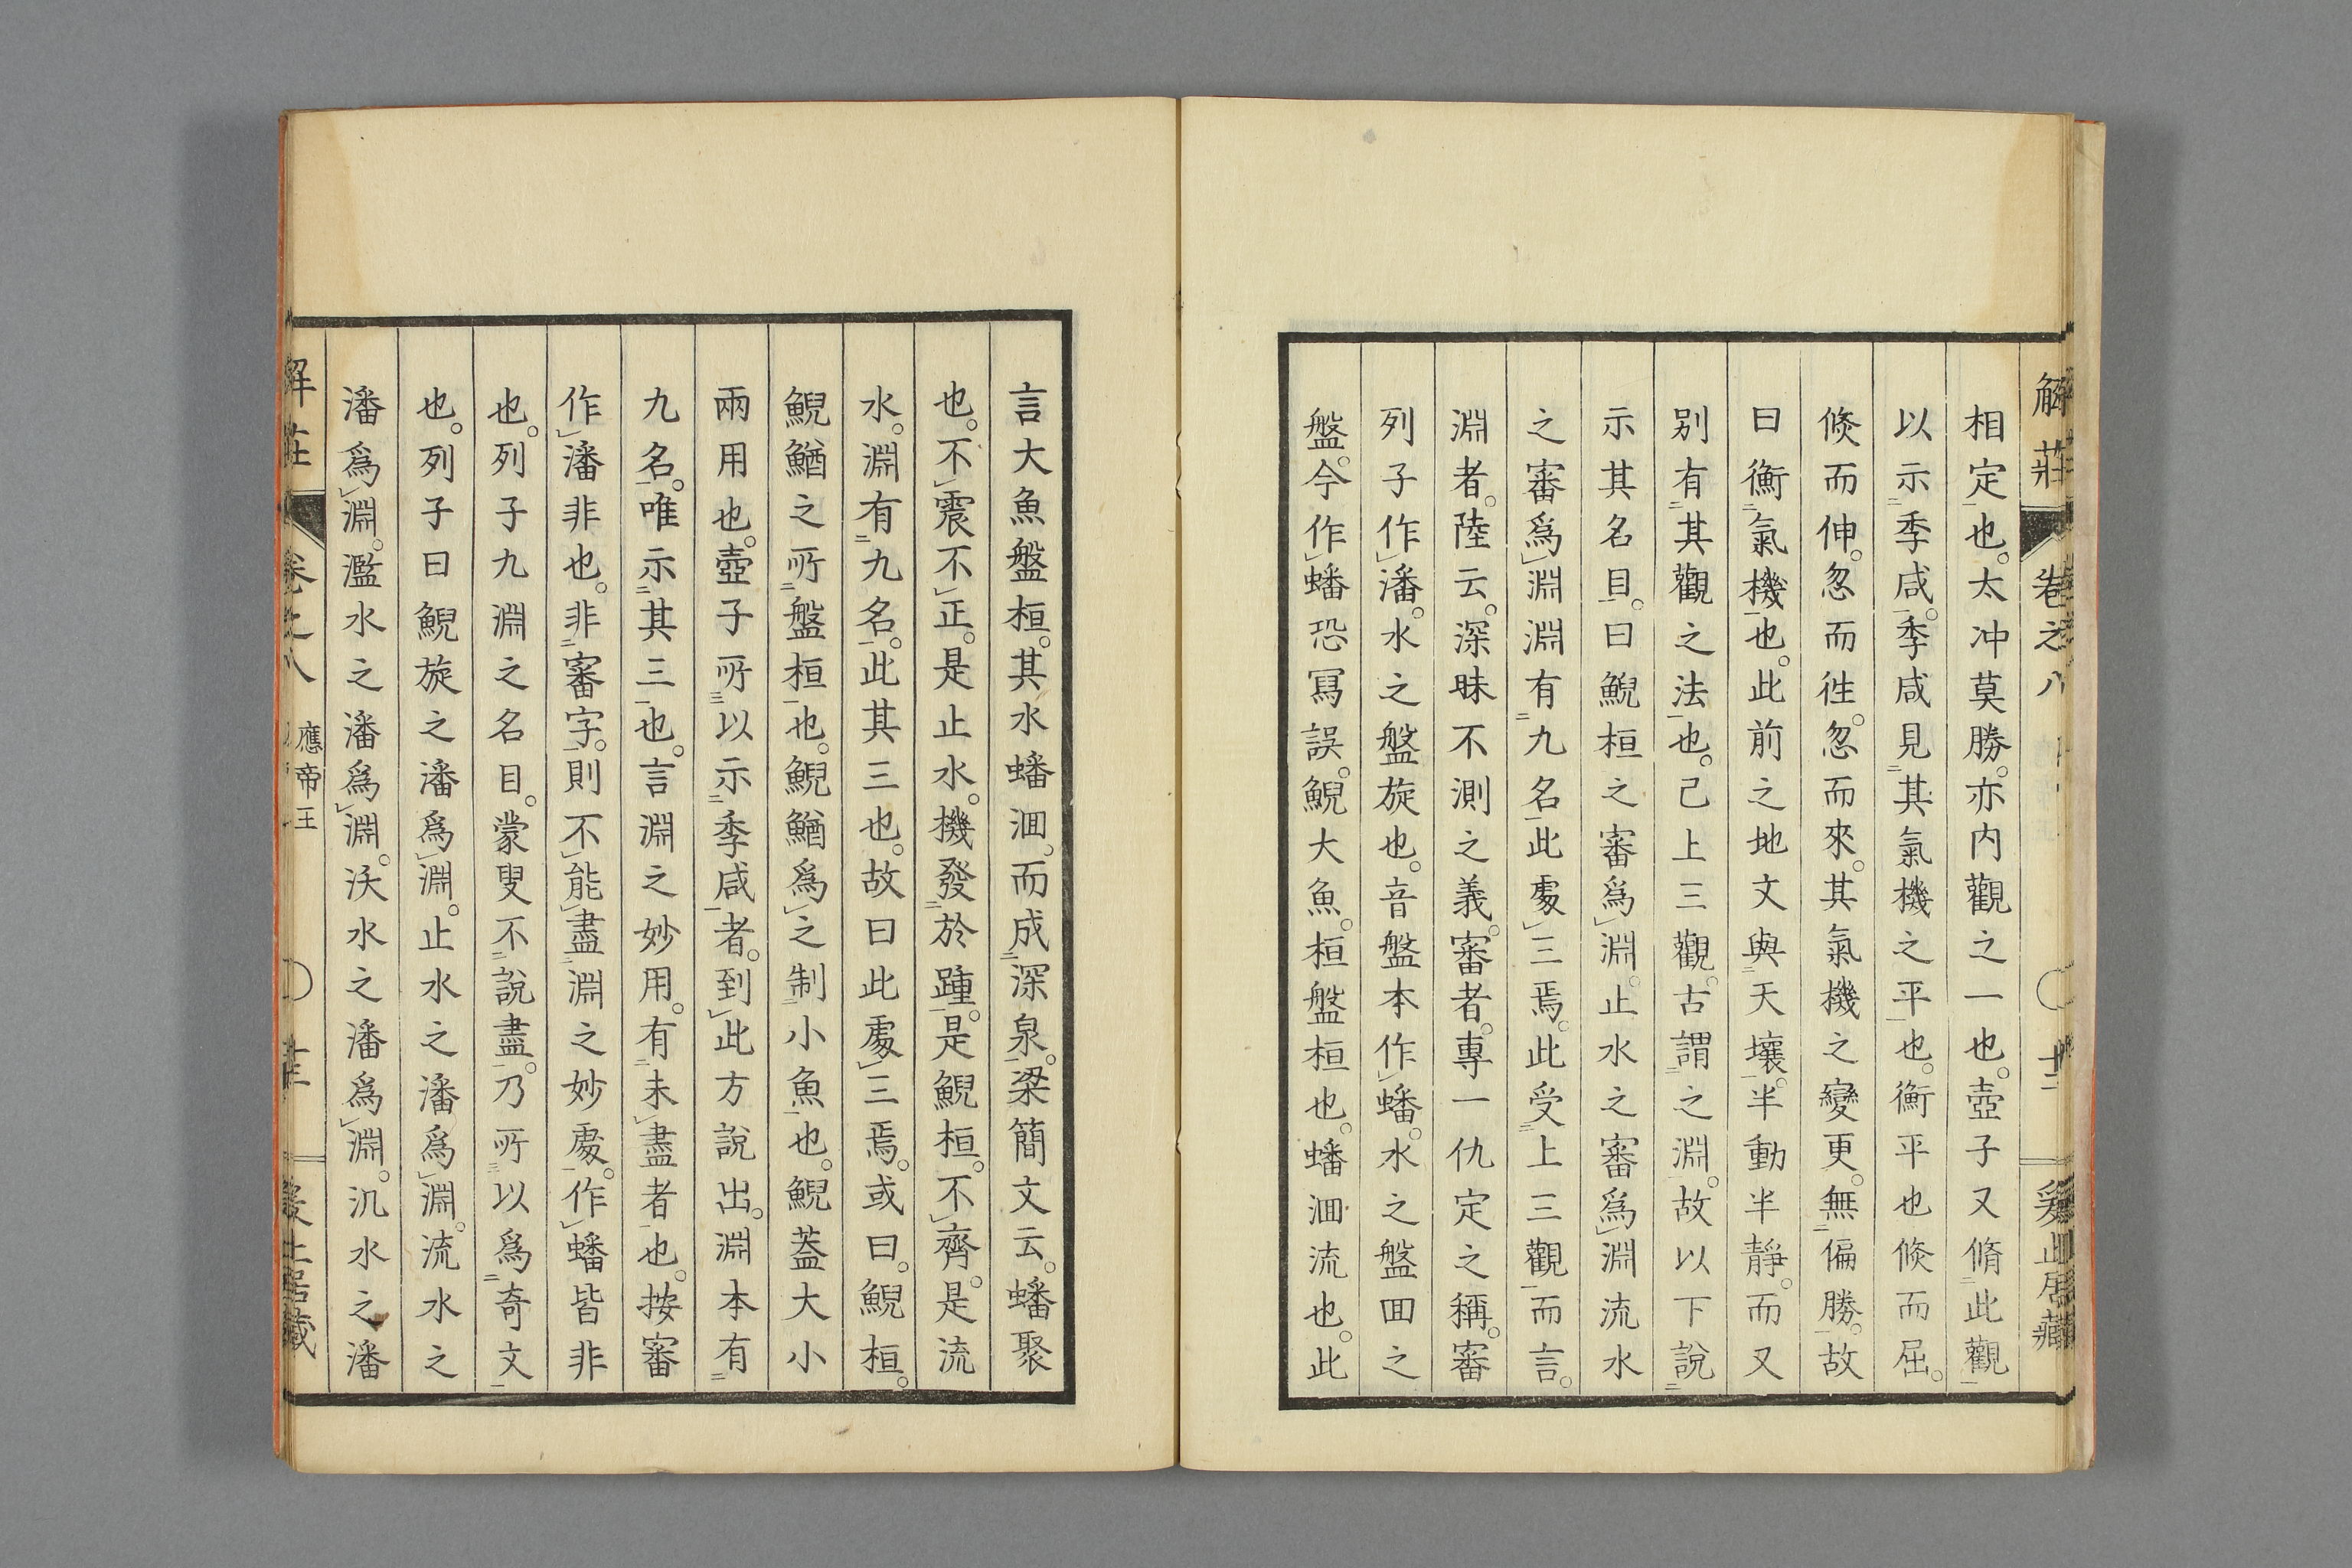 解莊 卷之八 十二 爰止居藏
相定也。太冲莫勝。亦内觀之一也。壺子又脩此觀
以示季咸。季咸見其氣機之平也。衡平也倐而屈。
倐而伸。忽而徃。忽而來。其氣機之變更。無偏勝。故
曰衡氣機也。此前之地文與天壤。半動半靜。而又
别有其觀之法也。己上三觀。古謂之淵。故以下說
示其名目。曰鯢桓之審爲淵。止水之審爲淵流水
之審爲淵淵有九名此處三焉。此受上三觀而言。
淵者。陸云。深昧不測之義。審者。專一仇定之稱。審
列子作潘。水之盤旋也。音盤本作蟠。水之盤囬之
盤。今作蟠恐冩誤。鯢大魚。桓盤桓也。蟠洄流也。此
言大魚盤桓。其水蟠洄。而成深泉。梁簡文云。蟠聚
也。不震不正。是止水。機發於踵。是鯢桓。不齊。是流
水。淵有九名。此其三也。故曰此處三焉。或曰。鯢桓。
鯢鰌之所盤桓也。鯢鰌爲之制小魚也。鯢蓋大小
兩用也。壺子所以示季咸者。到此方說出。淵本有
九名。唯示其三也。言淵之妙用。有未盡者也。按審
作潘非也。非審字。則不能盡淵之妙處。作蟠皆非
也。列子九淵之名目。蒙叟不說盡。乃所以爲奇文
也。列子曰鯢旋之潘爲淵。止水之潘爲淵。流水之
潘爲淵。濫水之潘爲淵。沃水之潘爲淵。氿水之潘
解莊 卷之八 應帝王 十三 爰止居藏